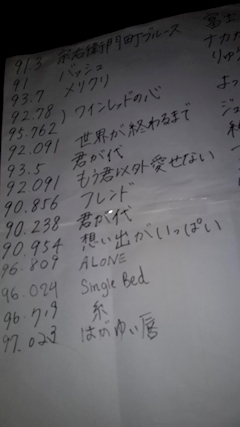 91.3 宗右衛門町ブルース 富士
91 バッシュ ナカナ
93.7 メリクリ りゅう
92.78 ) ワインレッドの心
95.762
92.091 世界が終わるまで よっ
93.5 君が代 ジュ
92.091 もう君以外愛せない
90.856 フレンド
90.238 君が代
90.954 想い出がいっぱい
96.809 ALONE
96.024 Single Bed
96.719 糸
97.023 はがゆい唇